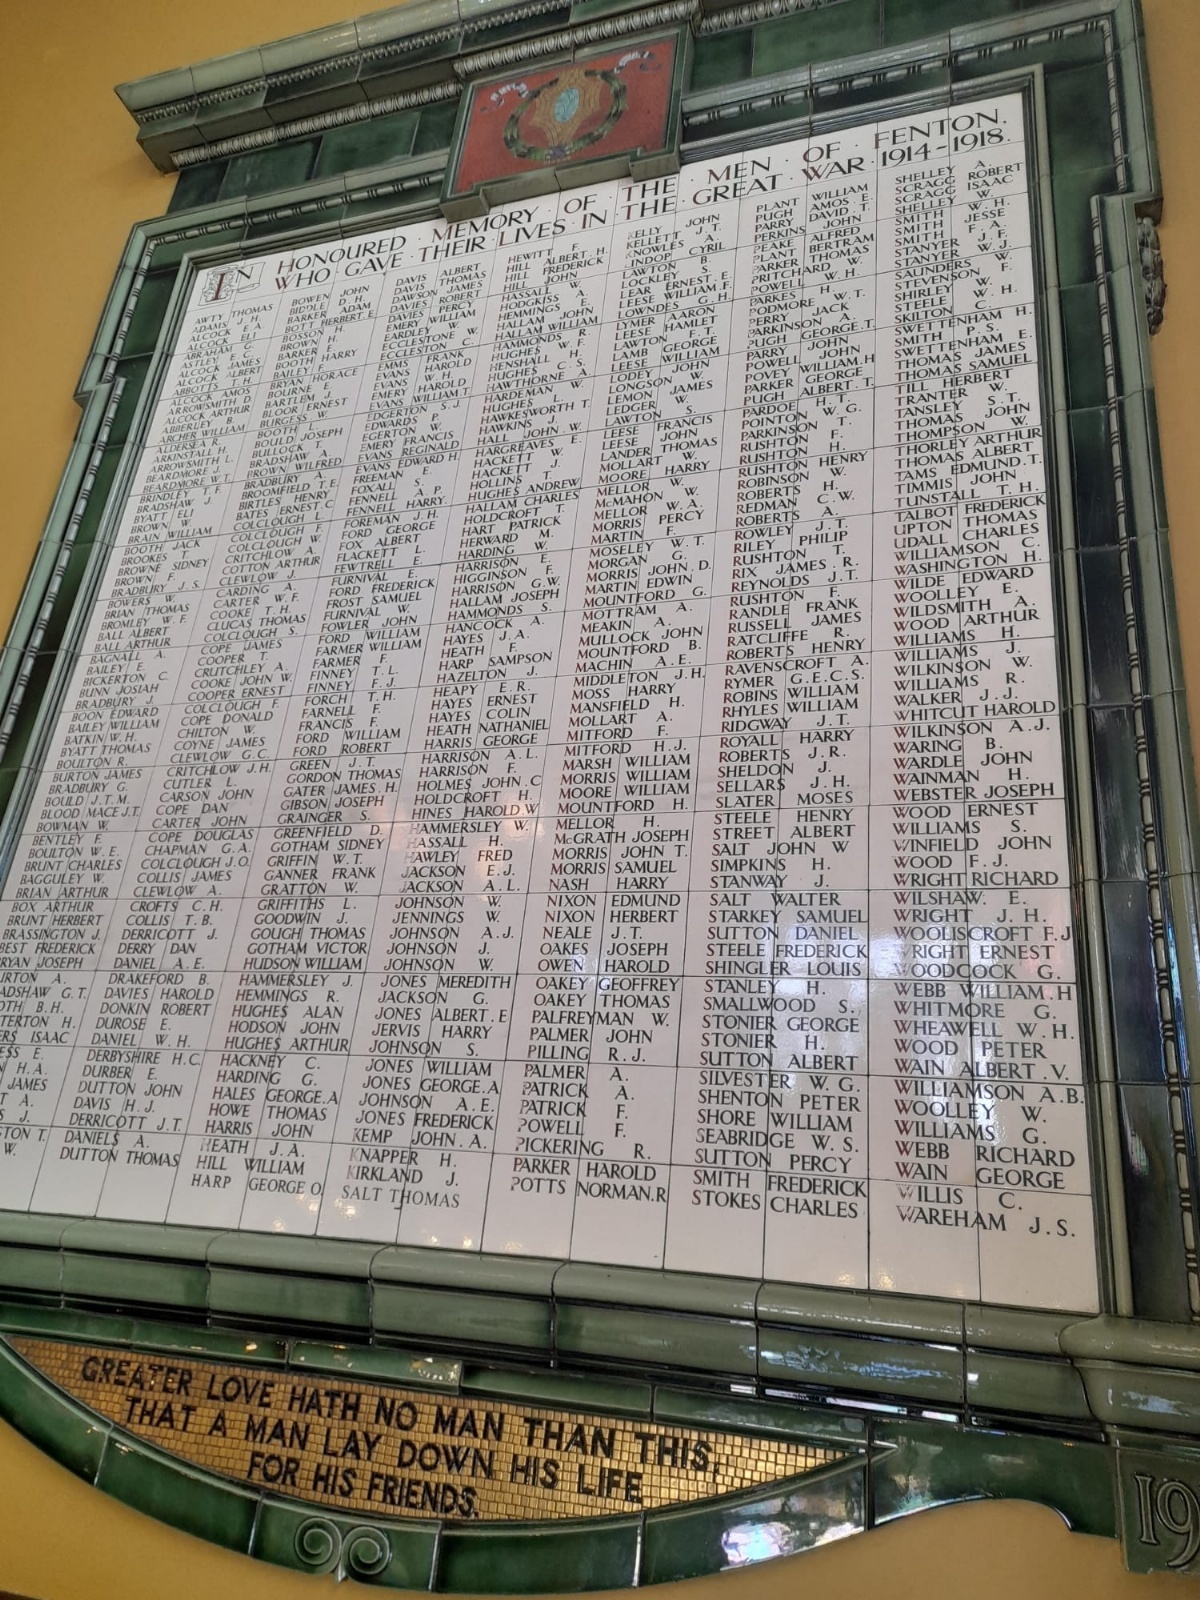 IN HONOURED · MEMORY · OF · THE · MEN · OF · FENTON,
WHO · GAVE · THEIR · LIVES · IN · THE · GREAT · WAR · 1914-1918.
AWTY THOMAS
ADAMS J.H.
ALCOCK E.A.
ALCOCK ELI
ABRAHAM G.
ASTLEY E.C.
ALCOCK JAMES
ALCOCK ALBERT
ABBOTTS T.H.
ALCOCK AMOS
ARROWSMITH D.
ALCOCK ARTHUR
ABBERLEY B.
ARCHER WILLIAM
ALDERSEA R.
ARKINSTALL H.
ARROWSMITH L.
BEARDMORE J.
BEARDMORE W.T.
BRINDLEY T.F.
BRADSHAW J.
BYATT ELI
BROWN W.
BRAIN WILLIAM
BOOTH JACK
BROOKES T.
BROWNE SIDNEY
BROWN F.
BRADBURY J.S.
BOWERS W.
BRIAN THOMAS
BROMLEY W.F.
BALL ALBERT
BALL ARTHUR
BAGNALL A.
BAILEY E.
BICKERTON C.
BUNN JOSIAH
BRADBURY J.
BOON EDWARD
BAILEY WILLIAM
BATKIN W.H.
BYATT THOMAS
BOULTON R.
BURTON JAMES
BRADBURY G.
BOULD J.T.M.
BLOOD MACE J.T.
BOWMAN W.
BENTLEY F.
BOULTON W.E.
BRUNT CHARLES
BAGGULEY W.
BRIAN ARTHUR
BOX ARTHUR
BRUNT HERBERT
BRASSINGTON J.
BEST FREDERICK
RYAN JOSEPH
URTON A.
ADSHAW G.T.
OTH B.H.
TERTON H.
ERS ISAAC
ESS E.
H.A.
JAMES
T A.
S J.
GTON T.
W.
BOWEN JOHN
BIDDLE D.H.
BARKER ADAM
BOTT HERBERT E.
BOSSON H.
BROWN H.
BARKER E.
BOOTH HARRY
BAILEY F.
BRYAN HORACE
BOURNE E.
BARTLEM J.
BLOOR ERNEST
BURGESS W.
BOOTH L.
BOULD JOSEPH
BULLOCK T.
BRADSHAW A.
BROWN WILFRED
BRADBURY A.
BROOMFIELD T.E.
BIRTLES HENRY
BATES ERNEST C.
COLCLOUGH L.
COLCLOUGH W.
CRITCHLOW A.
COTTON ARTHUR
CLEWLOW J.
CARDING A.
CARTER W.F.
COOKE T.H.
LUCAS THOMAS
COLCLOUGH S.
COPE JAMES
COOPER T.
CRUTCHLEY A.
COOKE JOHN W.
COOPER ERNEST
COLCLOUGH F.
COPE DONALD
CHILTON W.
COYNE JAMES
CLEWLOW G.C.
CRITCHLOW J.H.
CUTLER L.
CARSON JOHN
COPE DAN
CARTER JOHN
COPE DOUGLAS
CHAPMAN G.A.
COLCLOUGH J.O.
COLLIS JAMES
CLEWLOW A.
CROFTS C.H.
COLLIS T.B.
DERRICOTT J.
DERRY DAN
DANIEL A.E.
DRAKEFORD B.
DAVIES HAROLD
DONKIN ROBERT
DUROSE E.
DANIEL W.H.
DERBYSHIRE H.C.
DURBER E.
DUTTON JOHN
DAVIS H.J.
DERRICOTT J.T.
DANIELS A.
DUTTON THOMAS
DAVIS ALBERT
DAVIS THOMAS
DAWSON JAMES
DAVIES ROBERT
DAVIES PERCY
EMERY WILLIAM
EARDLEY W.
ECCLESTONE W.
ECCLESTON C.
EMMS FRANK
EVANS HAROLD
EVANS W.H.
EMERY HAROLD
EVANS WILLIAM T.
EDGERTON S.J.
EDWARDS P.
EGERTON W.
EMERY FRANCIS
EVANS REGINALD
EVANS EDWARD H.
FREEMAN E.
FOXALL S.
FENNELL A.P.
FENNELL HARRY
FOREMAN J.H.
FORD GEORGE
FOX ALBERT
FLACKETT L.
FEWTRELL E.
FURNIVAL E.
FORD FREDERICK
FROST SAMUEL
FURNIVAL W.
FOWLER JOHN
FORD WILLIAM
FARMER WILLIAM
FARMER F.
FINNEY T.L.
FINNEY F.J.
FORCH T.H.
FARNELL F.
FRANCIS F.
FORD WILLIAM
FORD ROBERT
GREEN J.T.
GORDON THOMAS
GATER JAMES H.
GIBSON JOSEPH
GRAINGER S.
GREENFIELD D.
GOTHAM SIDNEY
GRIFFIN W.T.
GANNER FRANK
GRATTON W.
GRIFFITHS L.
GOODWIN J.
GOUGH THOMAS
GOTHAM VICTOR
HUDSON WILLIAM
HAMMERSLEY J.
HEMMINGS R.
HUGHES ALAN
HODSON JOHN
HUGHES ARTHUR
HACKNEY C.
HARDING G.
HALES GEORGE.A
HOWE THOMAS
HARRIS JOHN
HEATH J.A.
HILL WILLIAM
HARP GEORGE O.
HEWITT F.
HILL ALBERT H.
HILL FREDERICK
HILL JOHN
HASSALL W.
HODGKISS A.
HEMMINGS E.
HALLAM JOHN
HALLAM WILLIAM
HAMMONDS T.
HUGHES W.F.
HENSHALL H.
HUGHES C.S.
HAWTHORNE A.
HARDEMAN W.
HUGHES L.
HAWKESWORTH T.
HAWKINS J.
HALL JOHN.W.
HARGREAVES E.
HACKETT W.
HACKETT J.
HOLLINS T.
HUGHES ANDREW
HALLAM CHARLES
HOLDCROFT T.
HART PATRICK
HERWARD M.
HARDING W.
HARRISON E.
HIGGINSON F.
HARRISON G.W.
HALLAM JOSEPH
HAMMONDS S.
HANCOCK A.
HAYES J.A.
HEATH F.
HARP SAMPSON
HAZELTON J.
HEAPY E.R.
HAYES ERNEST
HAYES COLIN
HEATH NATHANIEL
HARRIS GEORGE
HARRISON A.L.
HARRISON F.
HOLMES JOHN.C
HOLDCROFT H.
HINES HAROLD.W
HAMMERSLEY W.
HASSALL H.
HAWLEY FRED
JACKSON E.J.
JACKSON A.L.
JOHNSON W.
JENNINGS W.
JOHNSON A.J.
JOHNSON J.
JOHNSON W.
JONES MEREDITH
JACKSON G.
JONES ALBERT.E
JERVIS HARRY
JOHNSON S.
JONES WILLIAM
JONES GEORGE.A
JOHNSON A.E.
JONES FREDERICK
KEMP JOHN.A.
KNAPPER H.
KIRKLAND J.
SALT THOMAS
KELLY JOHN
KELLETT J.T.
KNOWLES A.
LINDOP CYRIL
LAWTON B.
LOCKLEY S.
LEAR ERNEST.E.
LEESE WILLIAM F.
LOWNDES G.H.
LYMER AARON
LEESE HAMLET
LAWTON F.T.
LAMB GEORGE
LEESE WILLIAM
LODEY JOHN
LONGSON W.
LEMON JAMES
LEDGER W.
LAWTON S.
LEESE FRANCIS
LEESE JOHN
LANDER THOMAS
MOLLART W.
MOORE HARRY
MELLOR W.
McMAHON W.
MELLOR W.A.
MORRIS PERCY
MARTIN F.
MOSELEY W.T.
MORGAN G.
MORRIS JOHN.D.
MARTIN EDWIN
MOUNTFORD G.
MOTTRAM A.
MEAKIN A.
MULLOCK JOHN
MOUNTFORD B.
MACHIN A.E.
MIDDLETON J.H.
MOSS HARRY
MANSFIELD H.
MOLLART A.
MITFORD F.
MITFORD H.J.
MARSH WILLIAM
MORRIS WILLIAM
MOORE WILLIAM
MOUNTFORD H.
MELLOR H.
McGRATH JOSEPH
MORRIS JOHN T.
MORRIS SAMUEL
NASH HARRY
NIXON EDMUND
NIXON HERBERT
NEALE J.T.
OAKES JOSEPH
OWEN HAROLD
OAKEY GEOFFREY
OAKEY THOMAS
PALFREYMAN W.
PALMER JOHN
PILLING R.J.
PALMER A.
PATRICK A.
PATRICK F.
POWELL F.
PICKERING R.
PARKER HAROLD
POTTS NORMAN.R
PLANT WILLIAM
PUGH AMOS E.
PARRY DAVID T.
PERKINS JOHN
PEAKE ALFRED
PLANT BERTRAM
PARKER THOMAS
PRITCHARD W.
POWELL W.H.
PARKES H.
PODMORE W.T.
PERRY JACK
PARKINSON A.
PUGH GEORGE.T.
PARRY JOHN
POWELL JOHN
POVEY WILLIAM.H
PARKER GEORGE
PUGH ALBERT.T.
PARDOE H.T.
POINTON W.G.
PARKINSON T.
RUSHTON F.
RUSHTON H.
RUSHTON HENRY
ROBINSON W.
ROBERTS H.
REDMAN C.W.
ROBERTS A.
ROWLEY J.T.
RILEY PHILIP
RUSHTON T.
RIX JAMES.R.
REYNOLDS J.T.
RUSHTON F.
RANDLE FRANK
RUSSELL JAMES
RATCLIFFE R.
ROBERTS HENRY
RAVENSCROFT A.
RYMER G.E.C.S.
ROBINS WILLIAM
RHYLES WILLIAM
RIDGWAY J.T.
ROYALL HARRY
ROBERTS J.R.
SHELDON J.
SELLARS J.H.
SLATER MOSES
STEELE HENRY
STREET ALBERT
SALT JOHN W
SIMPKINS H.
STANWAY J.
SALT WALTER
STARKEY SAMUEL
SUTTON DANIEL
STEELE FREDERICK
SHINGLER LOUIS
STANLEY H.
SMALLWOOD S.
STONIER GEORGE
STONIER H.
SUTTON ALBERT
SILVESTER W.G.
SHENTON PETER
SHORE WILLIAM
SEABRIDGE W.S.
SUTTON PERCY
SMITH FREDERICK
STOKES CHARLES
SHELLEY A.
SCRAGG ROBERT
SCRAGG ISAAC
SHELLEY W.
SMITH W.H.
SMITH JESSE
STANYER F.A.
STANYER J.F.
SAUNDERS W.J.
STEVENSON W.
SHIRLEY F.
STEELE W.H.
SKILTON C.
SWETTENHAM H.
SMITH P.S.
SWETTENHAM E.
THOMAS JAMES
THOMAS SAMUEL
TILL HERBERT
TRANTER W.
TANSLEY S.T.
THOMAS JOHN
THOMPSON W.
THORLEY ARTHUR
THOMAS ALBERT
TAMS EDMUND.T.
TIMMIS JOHN
TUNSTALL T.H.
TALBOT FREDERICK
UPTON THOMAS
UDALL CHARLES
WILLIAMSON C.
WASHINGTON H.
WILDE EDWARD
WOOLLEY E.
WILDSMITH A.
WOOD ARTHUR
WILLIAMS H.
WILLIAMS J.
WILKINSON W.
WILLIAMS R.
WALKER J.J.
WHITCUT HAROLD
WILKINSON A.J.
WARING B.
WARDLE JOHN
WAINMAN H.
WEBSTER JOSEPH
WOOD ERNEST
WILLIAMS S.
WINFIELD JOHN
WOOD F.J.
WRIGHT RICHARD
WILSHAW. E.
WRIGHT J.H.
WOOLISCROFT F.J
WRIGHT ERNEST
WOODCOCK G.
WEBB WILLIAM.H
WHITMORE G.
WHEAWELL W.H.
WOOD PETER
WAIN ALBERT.V.
WILLIAMSON A.B.
WOOLLEY W.
WILLIAMS G.
WEBB RICHARD
WAIN GEORGE
WILLIS C.
WAREHAM J.S.
GREATER LOVE HATH NO MAN THAN THIS,
THAT A MAN LAY DOWN HIS LIFE
FOR HIS FRIENDS.
19